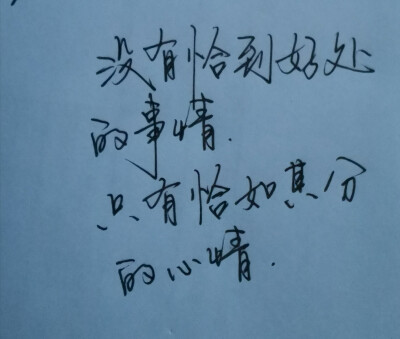 没有恰到好处
的事情.
只有恰如其分
的心情.